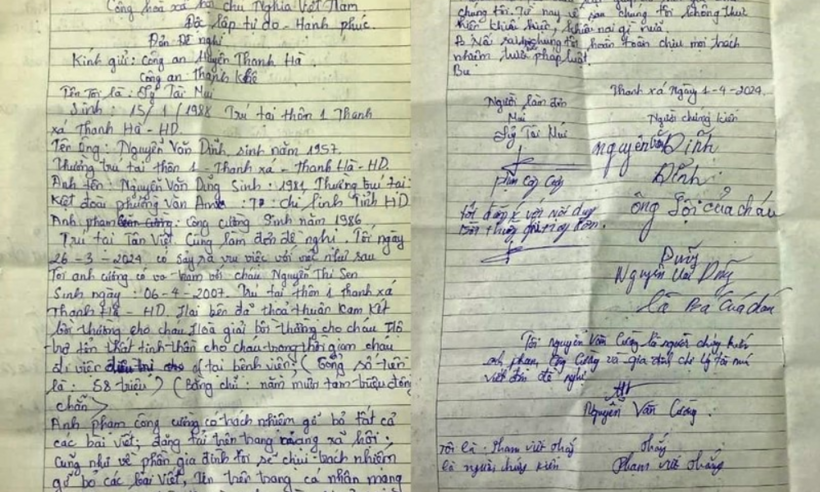 Cộng hoà xã hội chủ Nghĩa Việt Nam
Độc lập tự do - Hạnh phúc.
Đơn Đề nghị
Kính gửi: Công an Huyện Thanh Hà.
Công an Thanh Khê
Tên Tôi là: Lý Tài Múi
Sinh: 15/1/1988 Trú tại thôn 1 Thanh
xá Thanh Hà - HD.
Tên Ông: Nguyễn Văn Dĩnh, sinh năm 1957.
Thường trú tại thôn 1 - Thanh xá - Thanh Hà - HD.
Anh tên: Nguyễn Văn Sinh: 1981, Thường trú tại
phường Văn An Chí Linh Tỉnh HD
Anh phạm Công cường Sinh năm 1986
Trú tại Tân Việt. Cùng làm đơn đề nghị. Tối ngày
26-3-2024 có sảy ra vụ việc với như sau
Tôi anh cường có va trạm với cháu Nguyễn Thị Sen
Sinh ngày: 06-4-2007. Trú tại thôn 1 thanh xá
Thanh Hà - HD. Hai bên đã thoả thuận Kam Kết
bồi thường cho cháu Hoà giải bồi thường cho cháu Hỗ
trợ tổn thất tinh thần cho cháu trong thời gian cháu
đi viện tại bệnh viện, (Tổng số tiền
là: 58 triệu) (Bằng chữ: năm mươi tám triệu đồng
chẵn)
Anh phạm công cường có trách nhiệm gỡ bỏ tất cả
các bài viết, đăng tải trên trang mạng xã hội.
Cũng như về phần gia đình tôi sẽ chịu trách nhiệm
gỡ bỏ các bài viết, trên trang cá nhân mạng
chúng tôi. Từ nay về sau chúng tôi không thực
hiện khiếu kiện, khiếu nại gì nữa.
Nếu sai chúng tôi hoàn toàn chịu mọi trách
nhiệm trước pháp luật.
Thanh xá Ngày 1-4-2024.
Người làm đơn
Múi
Lý Tài Múi
Người chứng kiến
nguyễn văn Dĩnh
Dĩnh
ông nội của cháu
Tôi đồng ý với nội dung
Nguyễn Văn
là Bố của cháu
Tôi nguyễn Văn Cường là người chứng kiến
anh phạm Công Cường và gia đình chị lý tài múi
viết đơn đề nghị
Nguyễn Văn Cường.
Tôi là: Phạm viết thắng
là người chứng kiến
thắng
Phạm viết thắng